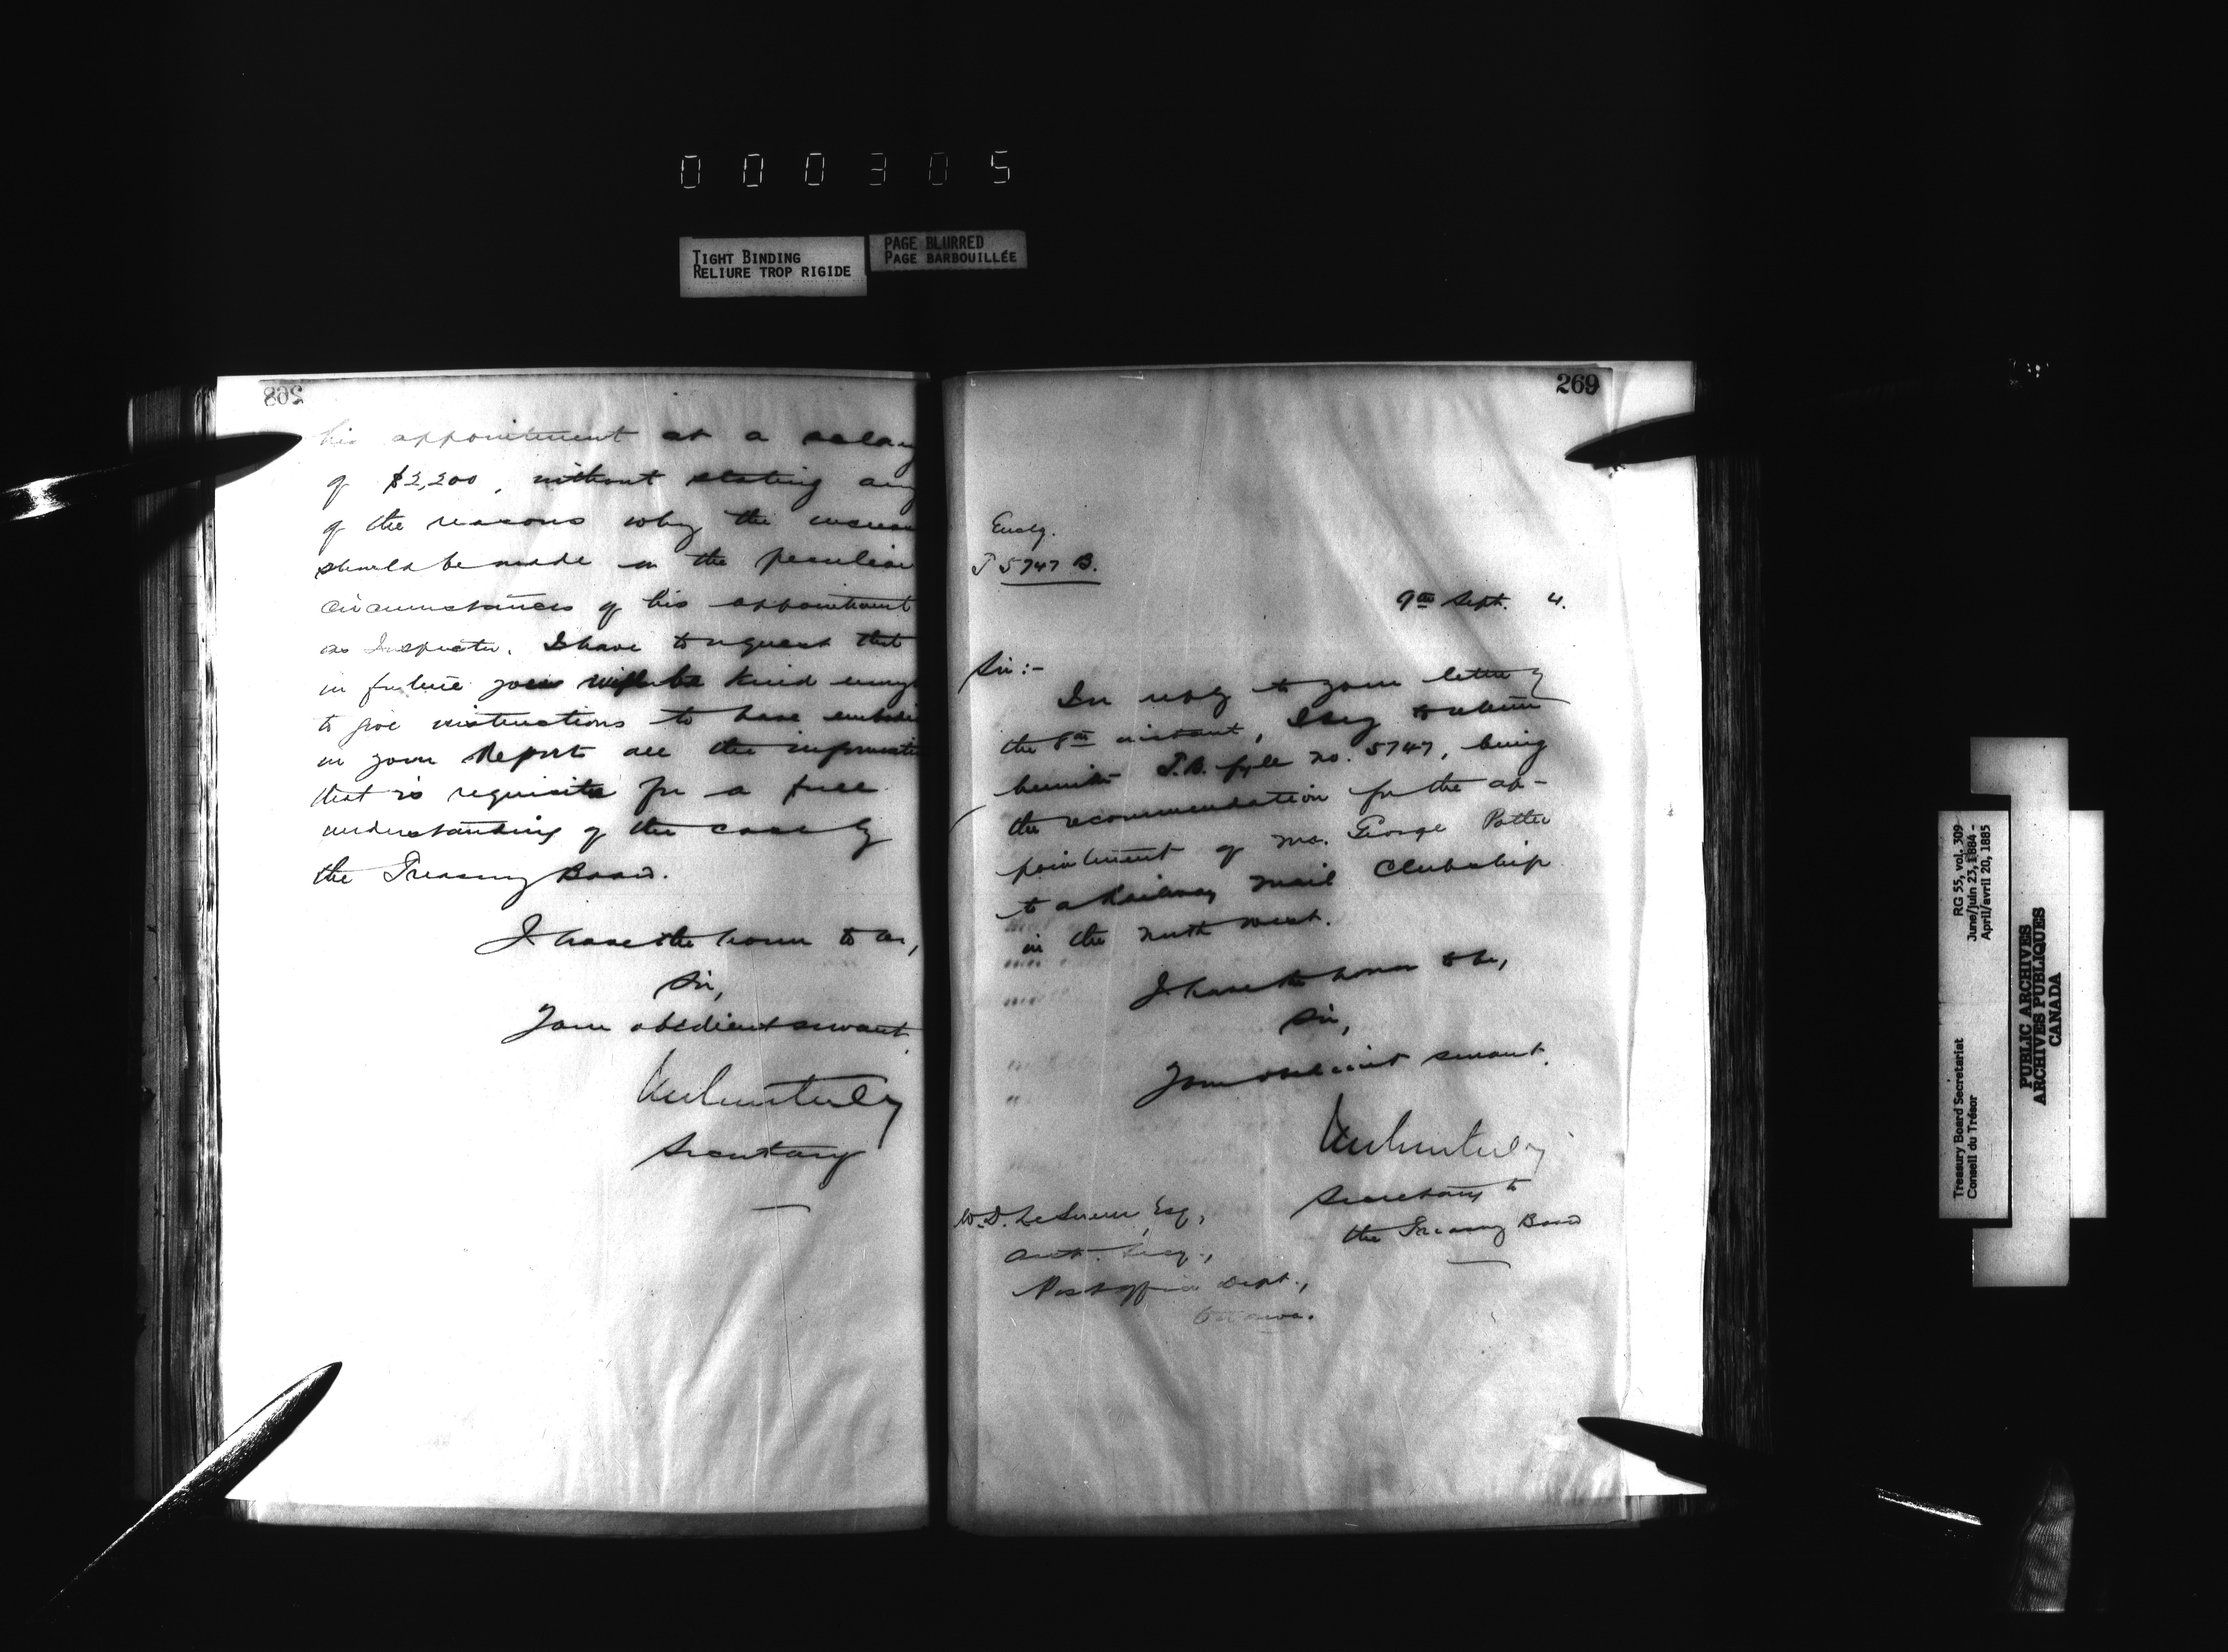 000305
TIGHT BINDING
RELIURE TROP RIGIDE
PAGE BLURRED
PAGE BARBOUILLÉE
268
his appointment at a salary
of $2,200, without stating any
of the reasons why the increase
should be made in the peculiar
circumstances of his appointment
as Inspector. I have to request that
in future you will be kind enough
to give instructions to have embodied
in your Report all the information
that is requisite for a full
understanding of the case by
the Treasury Board.
I have the honor to be,
Sir,
Your obedient servant
Secretary
269
Enclg.
T 5747 B.
9th Sept. 4.
Sir:-
In reply to your letter of
the 8th instant, I beg to return
herewith T.B. fyle no. 5747, being
the recommendation for the ap-
pointment of Mr. George Potter
to a Railway Mail Clerkship
in the North West.
I have the honor to be,
Sir,
Your obedient servant.
Secretary to
the Treasury Board
W.D. LeSueur, Esq,
Post office Dept.,
Ottawa.
Treasury Board Secretariat
Conseil du Trésor
RG 55, vol. 309
June/juin 23, 1884 -
April/avril 20, 1885
PUBLIC ARCHIVES
ARCHIVES PUBLIQUES
CANADA